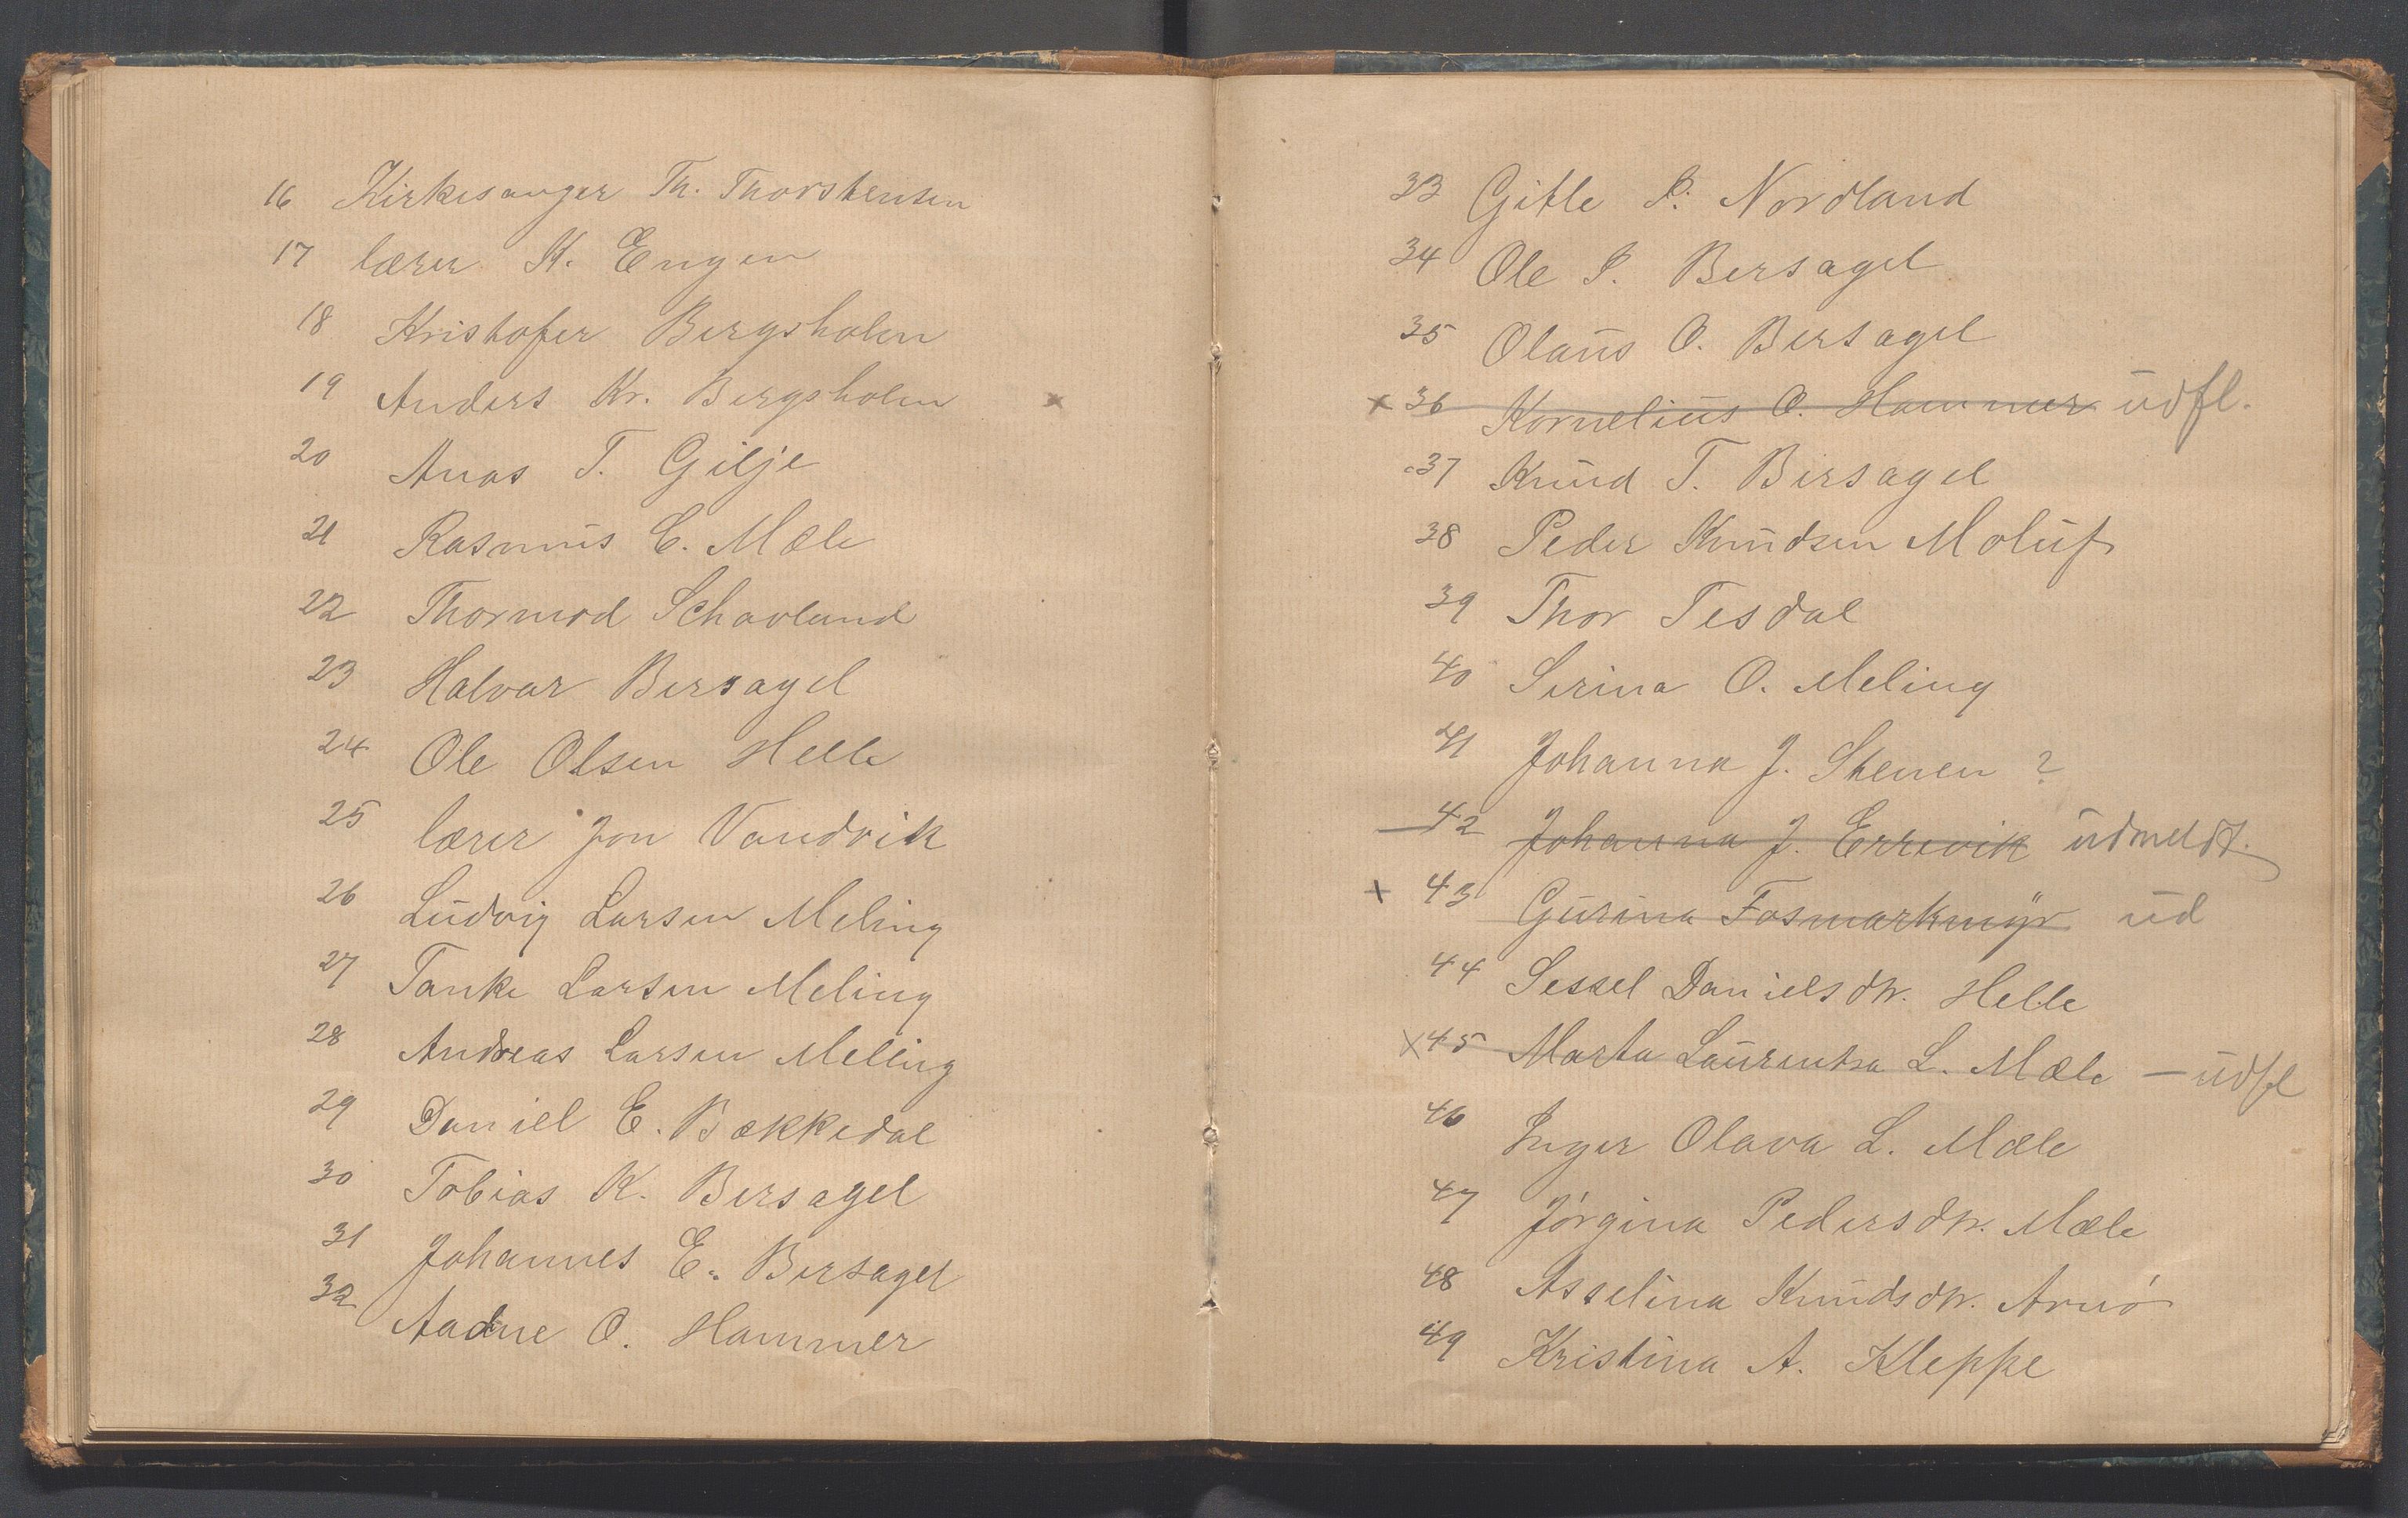 16 Kirkesanger Th. Thorstensen
17 lærer K. Engen
18 Kristofer Bergsholm
19 Anders Kr. Bergsholm x
20 Anas T. Gilje
21 Rasmus C. Mæle
22 Thormod Schavland
23 Halvar Bersagel
24 Ole Olsen Helle
25 lærer Jon Vandvik
26 Ludvig Larsen Meling
27 Tanke Larsen Meling
28 Andreas Larsen Meling
29 Daniel E. Bækkedal
30 Tobias K. Bersagel
31 Johannes E. Bersagel
32 Aadne O. Hammer
33 Gitle P. Nordland
34 Ole P. Bersagel
35 Olaus O. Bersagel
x 36 Kornelius O. Hammer udfl.
37 Knud T. Bersagel
38 Peder Knudsen Moluf
39 Thor Tesdal
40 Serina O. Meling
41 Johanna J. Stenen ?
42 Johanna J. Errevik udmeldt.
x 43 Gurina Fosmarkmyr ud
44 Sessel Danielsdtr. Helle
x 45 Marta Laurentsa L. Mæle — udfl
46 Inger Olava L. Mæle
47 Jørgina Pedersdtr. Mæle
48 Asselina Knudsdtr. Arnø
49 Kristina A. Kleppe